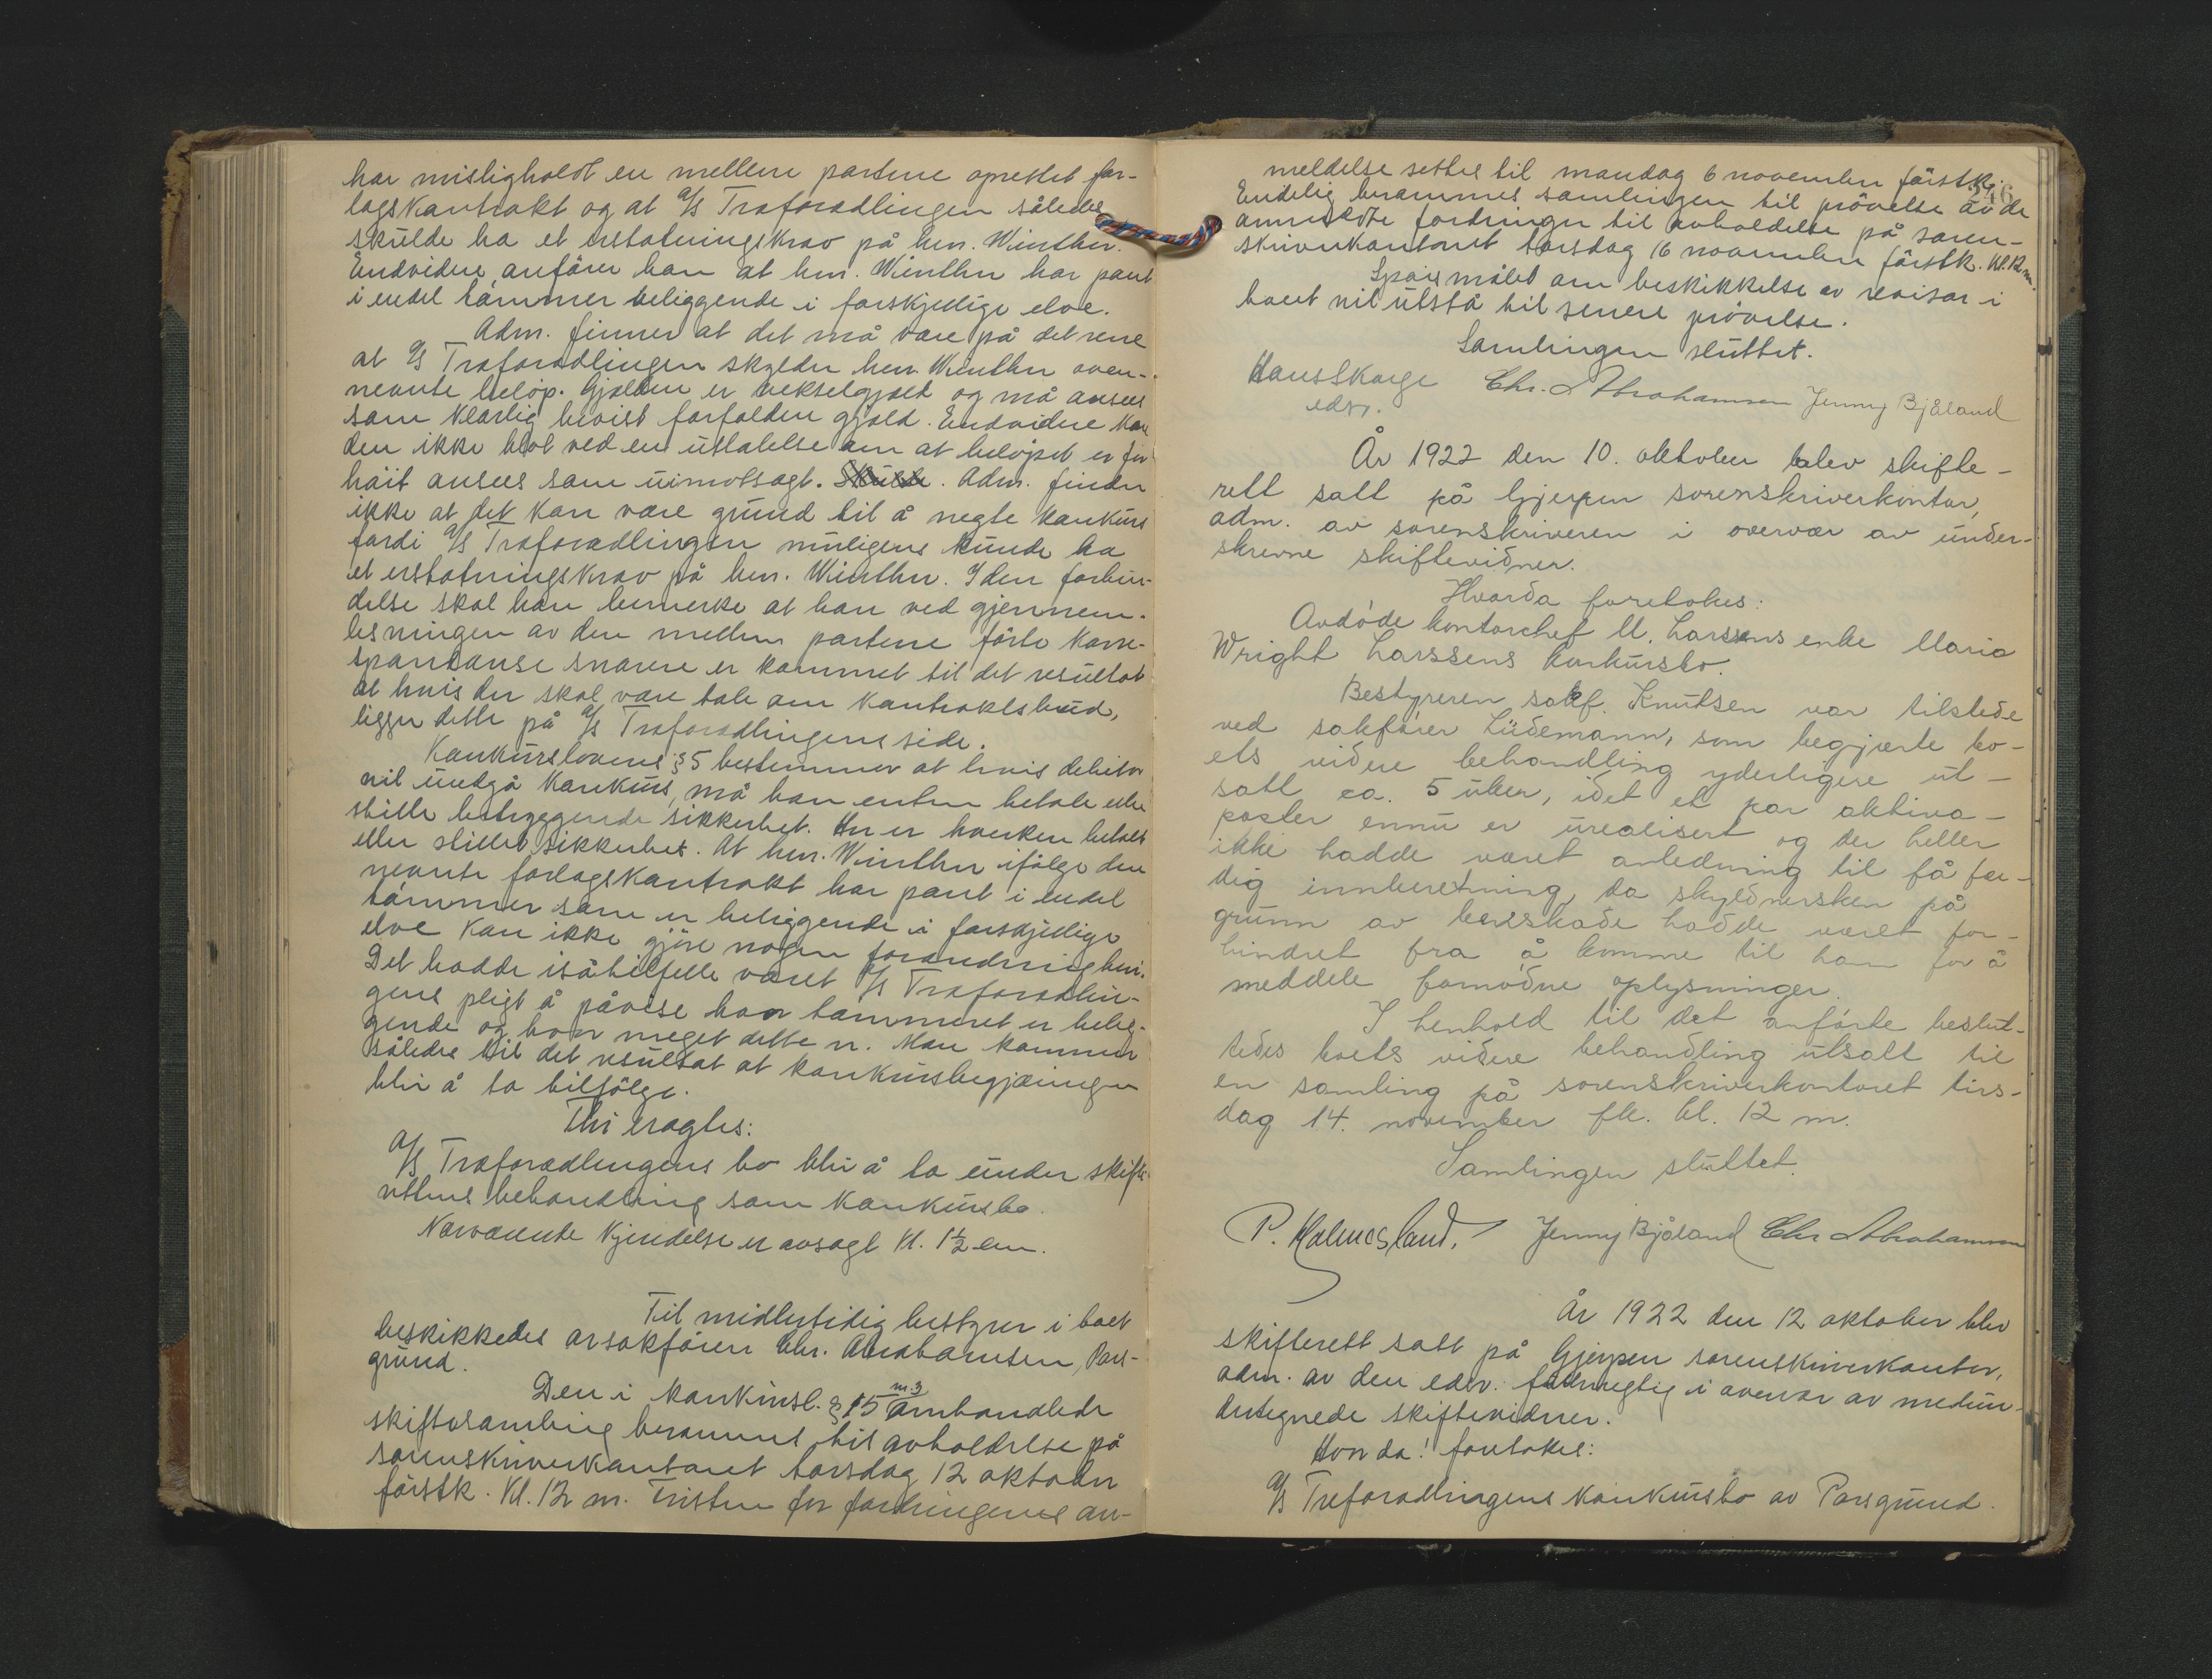 har misligholdt en mellem partene oprettet for-
lagskontrakt og at A/S Træforædlingen således
skulde ha et erstatningskrav på hrr. Winther.
Endvidere anfører han at hrr. Winther har pant
i endel tømmer beliggende i forskjellige elve.
Adm. finner at det må være på det rene
at A/S Træforædlingen skylder hrr. Winther oven-
nevnte beløp. Gjælden er vekselgjæld og må ansees
som klarlig bevist forfalden gjæld. Endvidere kan
den ikke blot ved en uttalelse om at beløpet er for
høit ansees som uimotsagt. Skulde. Adm. finder
ikke at det kan være grund til å negte konkurs
fordi A/S Træforædlingen muligens kunde ha
et erstatningskrav på hrr. Winther. I den forbin-
delse skal han bemerke at han ved gjennem-
lesningen av den mellem partene førte korre-
spondanse snarere er kommet til det resultat
at hvis der skal være tale om kontraktsbrud,
ligger dette på A/S Træforædlingens side.
Konkurslovens § 5 bestemmer at hvis debitor
vil undgå konkurs, må han enten betale eller
stille betryggende sikkerhet. Her er hverken betalt
eller stillet sikkerhet. At hrr. Winther ifølge den
nevnte forlagskontrakt har pant i endel
tømmer som er beliggende i forskjellige
elve kan ikke gjøre nogen forandring heri.
Det hadde i så tilfelle været A/S Træforædlin-
gens pligt å påvise hvor tømmeret er belig-
gende og hvor meget dette er. Man kommer
således til det resultat at konkursbegjæringen
blir å ta tilfølge.
Thi eragtes:
A/S Træforædlingens bo blir å ta under skifte-
rettens behandling som konkursbo.
Nærværende kjendelse er avsagt kl. 1½ em.
Til midlertidig bestyrer i boet
beskikkedes orsakfører Chr. Abrahamsen, Pors-
grund.
Den i konkursl. § 15 m. 3 omhandlede
skiftesamling berammes til avholdelse på
sorenskriverkontoret torsdag 12 oktober
førstk. kl. 12 m. Fristen for fordringenes an-
meldelse settes til mandag 6 november førstk.
Endelig berammes samlingen til prøvelse av de
anmeldte fordringer til avholdelse på soren-
skriverkontoret torsdag 16 november førstk. kl. 12 m.
Spørsmålet om beskikkelse av revisor i
boet vil utstå til senere prøvelse.
Samlingen sluttet.
Hans Skarge Chr. Abrahamsen Jenny Bjåland
edsv.
År 1922 den 10. oktober blev skifte-
rett satt på Gjerpen sorenskriverkontor,
adm. av sorenskriveren i overvær av under-
skrevne skiftevidner.
Hvorda foretokes:
Avdøde kontorchef M. Larssens enke Maria
Wright Larssens konkursbo.
Bestyreren sakf. Knutsen var tilstede
ved sakfører Lüdemann, som begjærte bo-
ets videre behandling yderligere ut-
satt ca. 5 uker, idet et par aktiva-
poster ennu er urealisert og der heller
ikke hadde været anledning til få fær-
dig innberetning, da skyldnersken på
grunn av benskade hadde været for-
hindret fra å komme til ham for å
meddele fornødne oplysninger.
I henhold til det anførte beslut-
tedes boets videre behandling utsatt til
en samling på sorenskriverkontoret tirs-
dag 14. november fk. kl. 12 m.
Samlingen sluttet.
P. Holmesland. Jenny Bjåland Chr Abrahamsen
År 1922 den 12 oktober blev
skifterett satt på Gjerpen sorenskriverkontor,
adm. av den edsv. fuldmegtig i overvær av medun-
dertegnede skiftevidner.
Hvor da! foretokes:
A/S Treforædlingens konkursbo av Porsgrund.